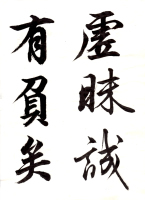 虗昧誠
有負矣